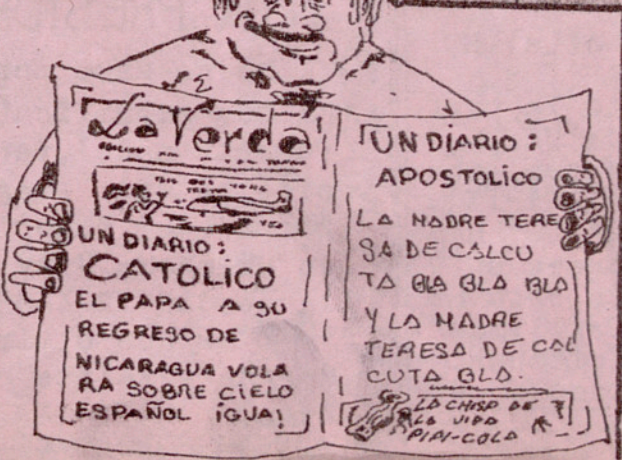 La Verdá
UN DIARIO:
CATOLICO
EL PAPA A SU
REGRESO DE
NICARAGUA VOLA
RA SOBRE CIELO
ESPAÑOL IGUAL
UN DIARIO:
APOSTOLICO
LA MADRE TERE
SA DE CALCU
TA BLA BLA BLA
Y LA MADRE
TERESA DE CAL
CUTA BLA.
LA CHISP DE
LA VIDA
PIPI-COLA